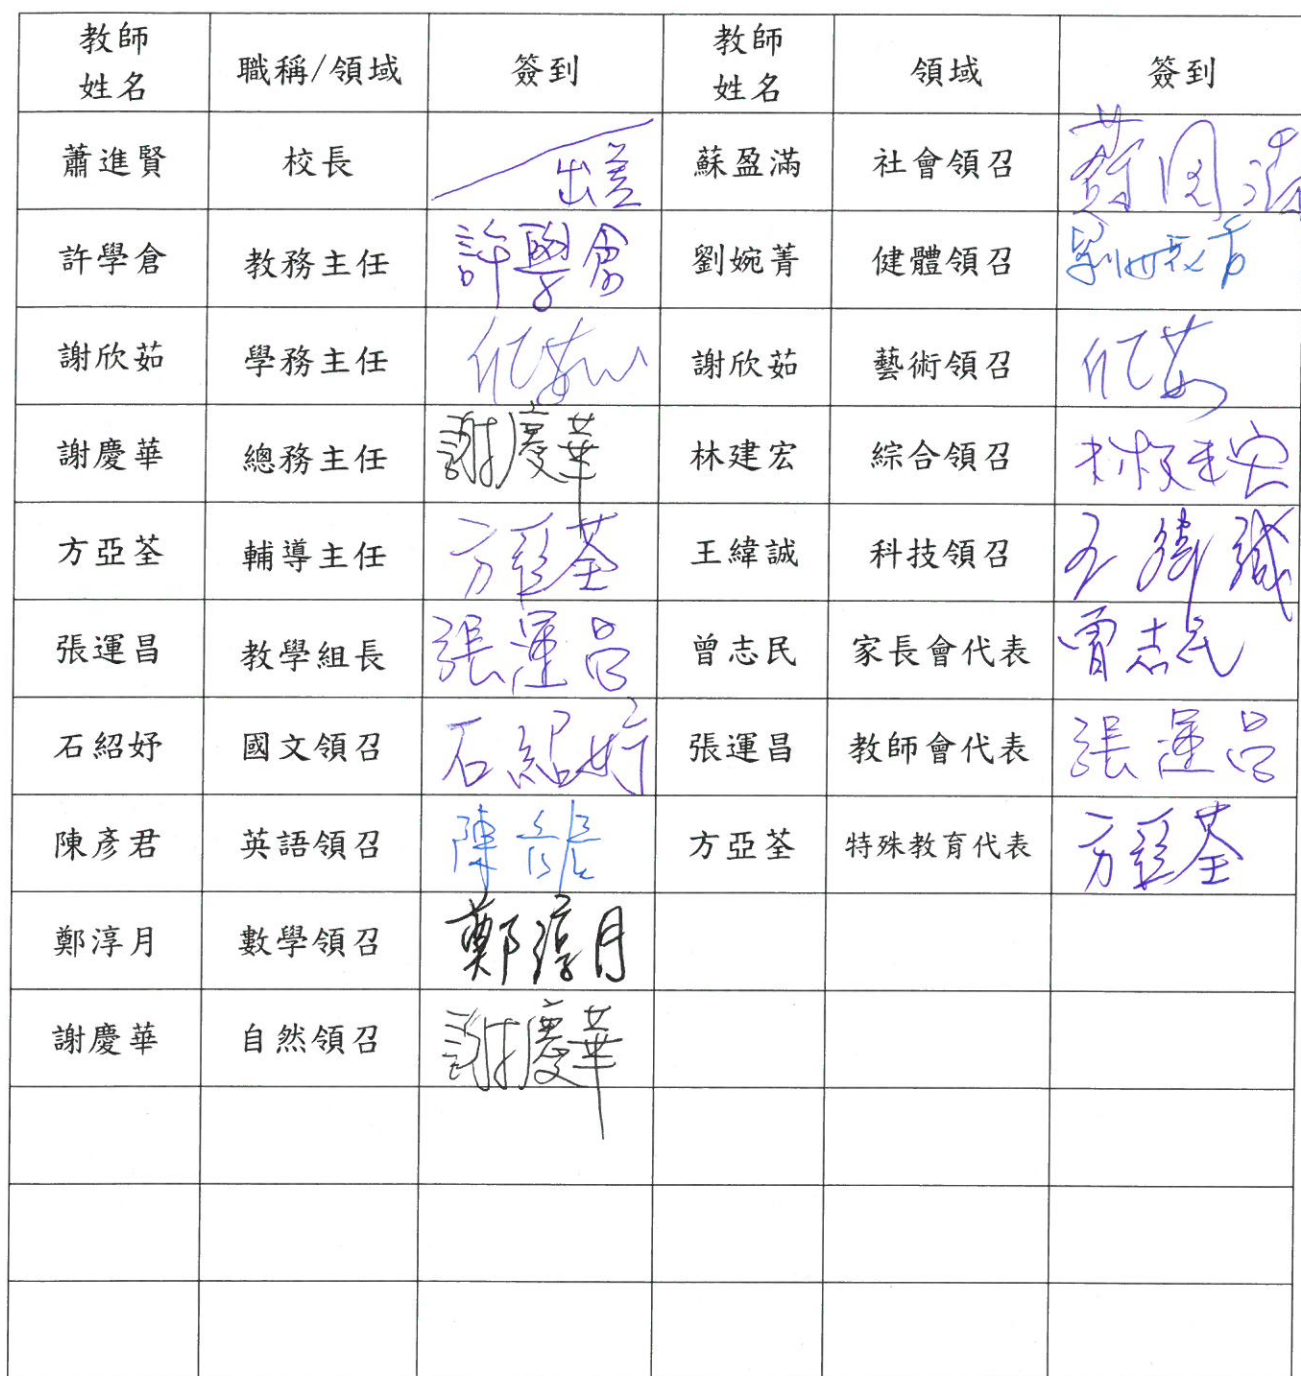 教師姓名 職稱/領域 簽到 教師姓名 領域 簽到
蕭進賢 校長 出差 蘇盈滿 社會領召
許學倉 教務主任 許學倉 劉婉菁 健體領召
謝欣茹 學務主任 謝欣茹 藝術領召
謝慶華 總務主任 謝慶華 林建宏 綜合領召 林建宏
方亞荃 輔導主任 方亞荃 王緯誠 科技領召 王緯誠
張運昌 教學組長 張運昌 曾志民 家長會代表 曾志民
石紹妤 國文領召 石紹妤 張運昌 教師會代表 張運昌
陳彥君 英語領召 方亞荃 特殊教育代表 方亞荃
鄭淳月 數學領召 鄭淳月
謝慶華 自然領召 謝慶華